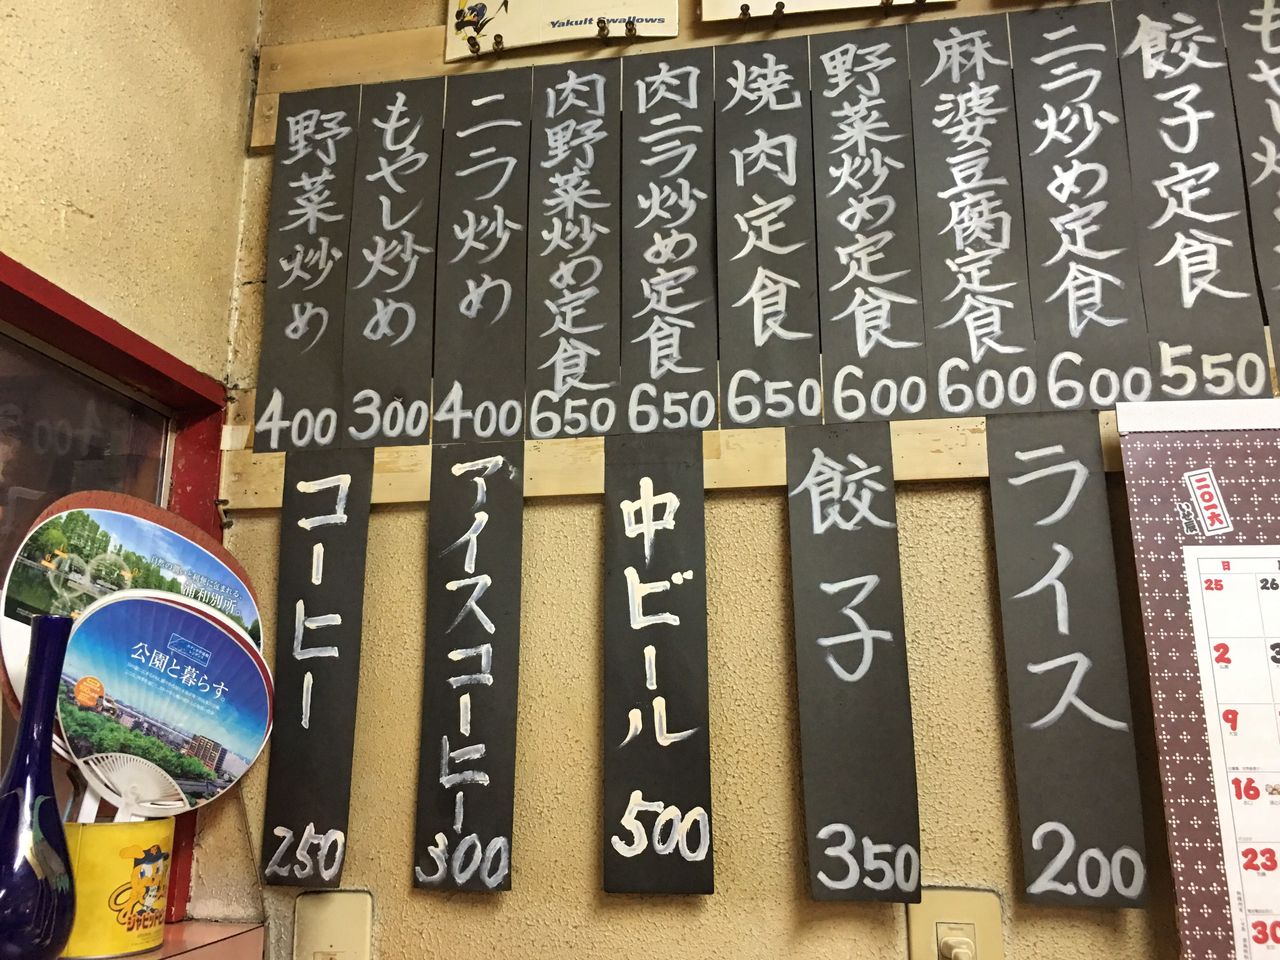 Yakult Swallows
餃子定食 550
ニラ炒め定食 600
麻婆豆腐定食 600
野菜炒め定食 600
焼肉定食 650
肉ニラ炒め定食 650
肉野菜炒め定食 650
ニラ炒め 400
もやし炒め 300
野菜炒め 400
ライス 200
餃子 350
中ビール 500
アイスコーヒー 300
コーヒー 250
浦和別所。
公園と暮らす。
二〇一六
日
25
26
2
9
16
23
30